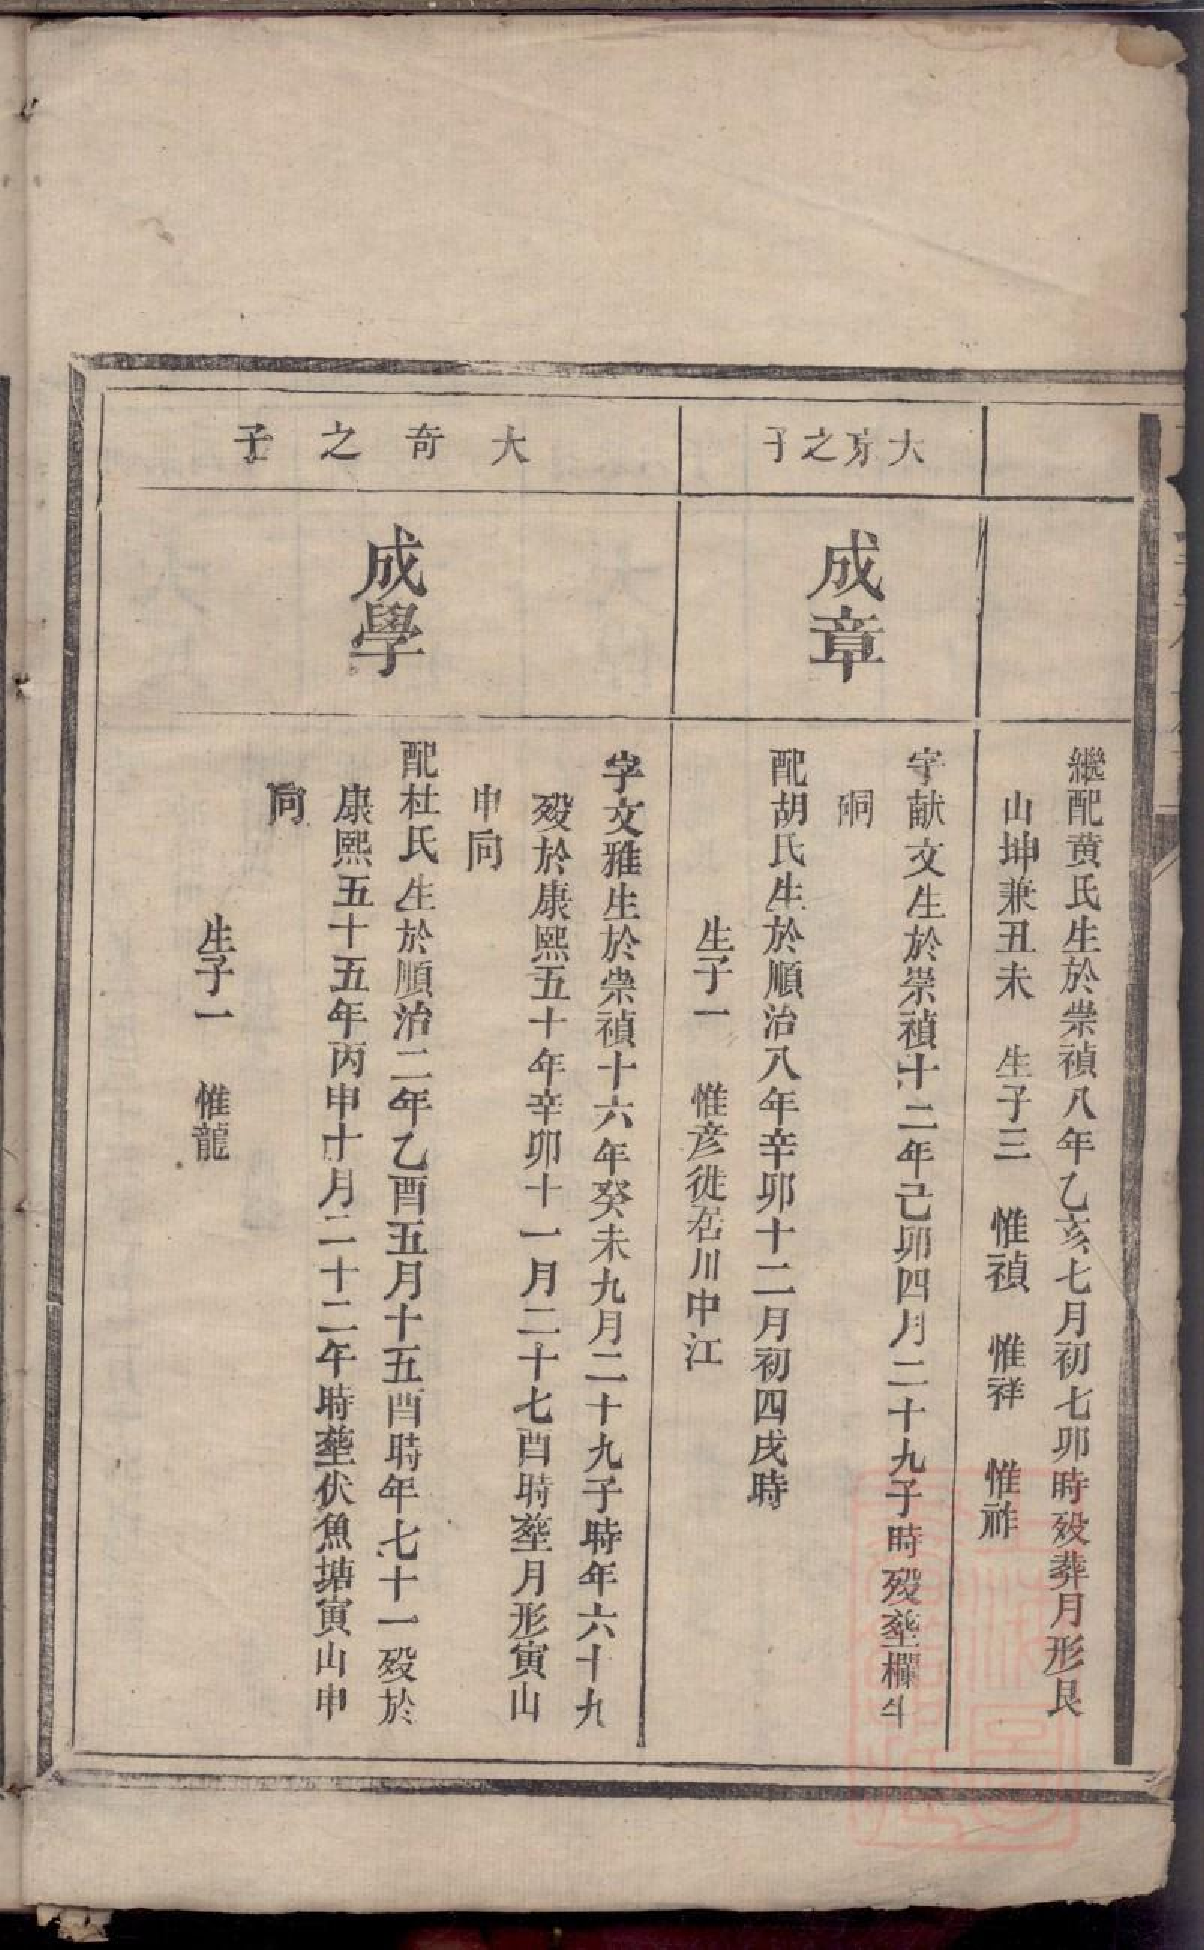 繼配黄氏生於崇禎八年乙亥七月初七卯時歿葬月形艮
山坤兼丑未　生子三　惟禎　惟祥　惟祚
大方之子
成章
字献文生於崇禎十二年己卯四月二十九子時歿塟欄斗
硐
配胡氏生於順治八年辛卯十二月初四戌時
生子一　惟彦徙居川中江
大奇之子
成學
字文雅生於崇禎十六年癸未九月二十九子時年六十九
歿於康熙五十年辛卯十一月二十七酉時塟月形寅山
申向
配杜氏生於順治二年乙酉五月十五酉時年七十一歿於
康熙五十五年丙申十月二十二午時塟伏魚塘寅山申
向
生子一　惟龍